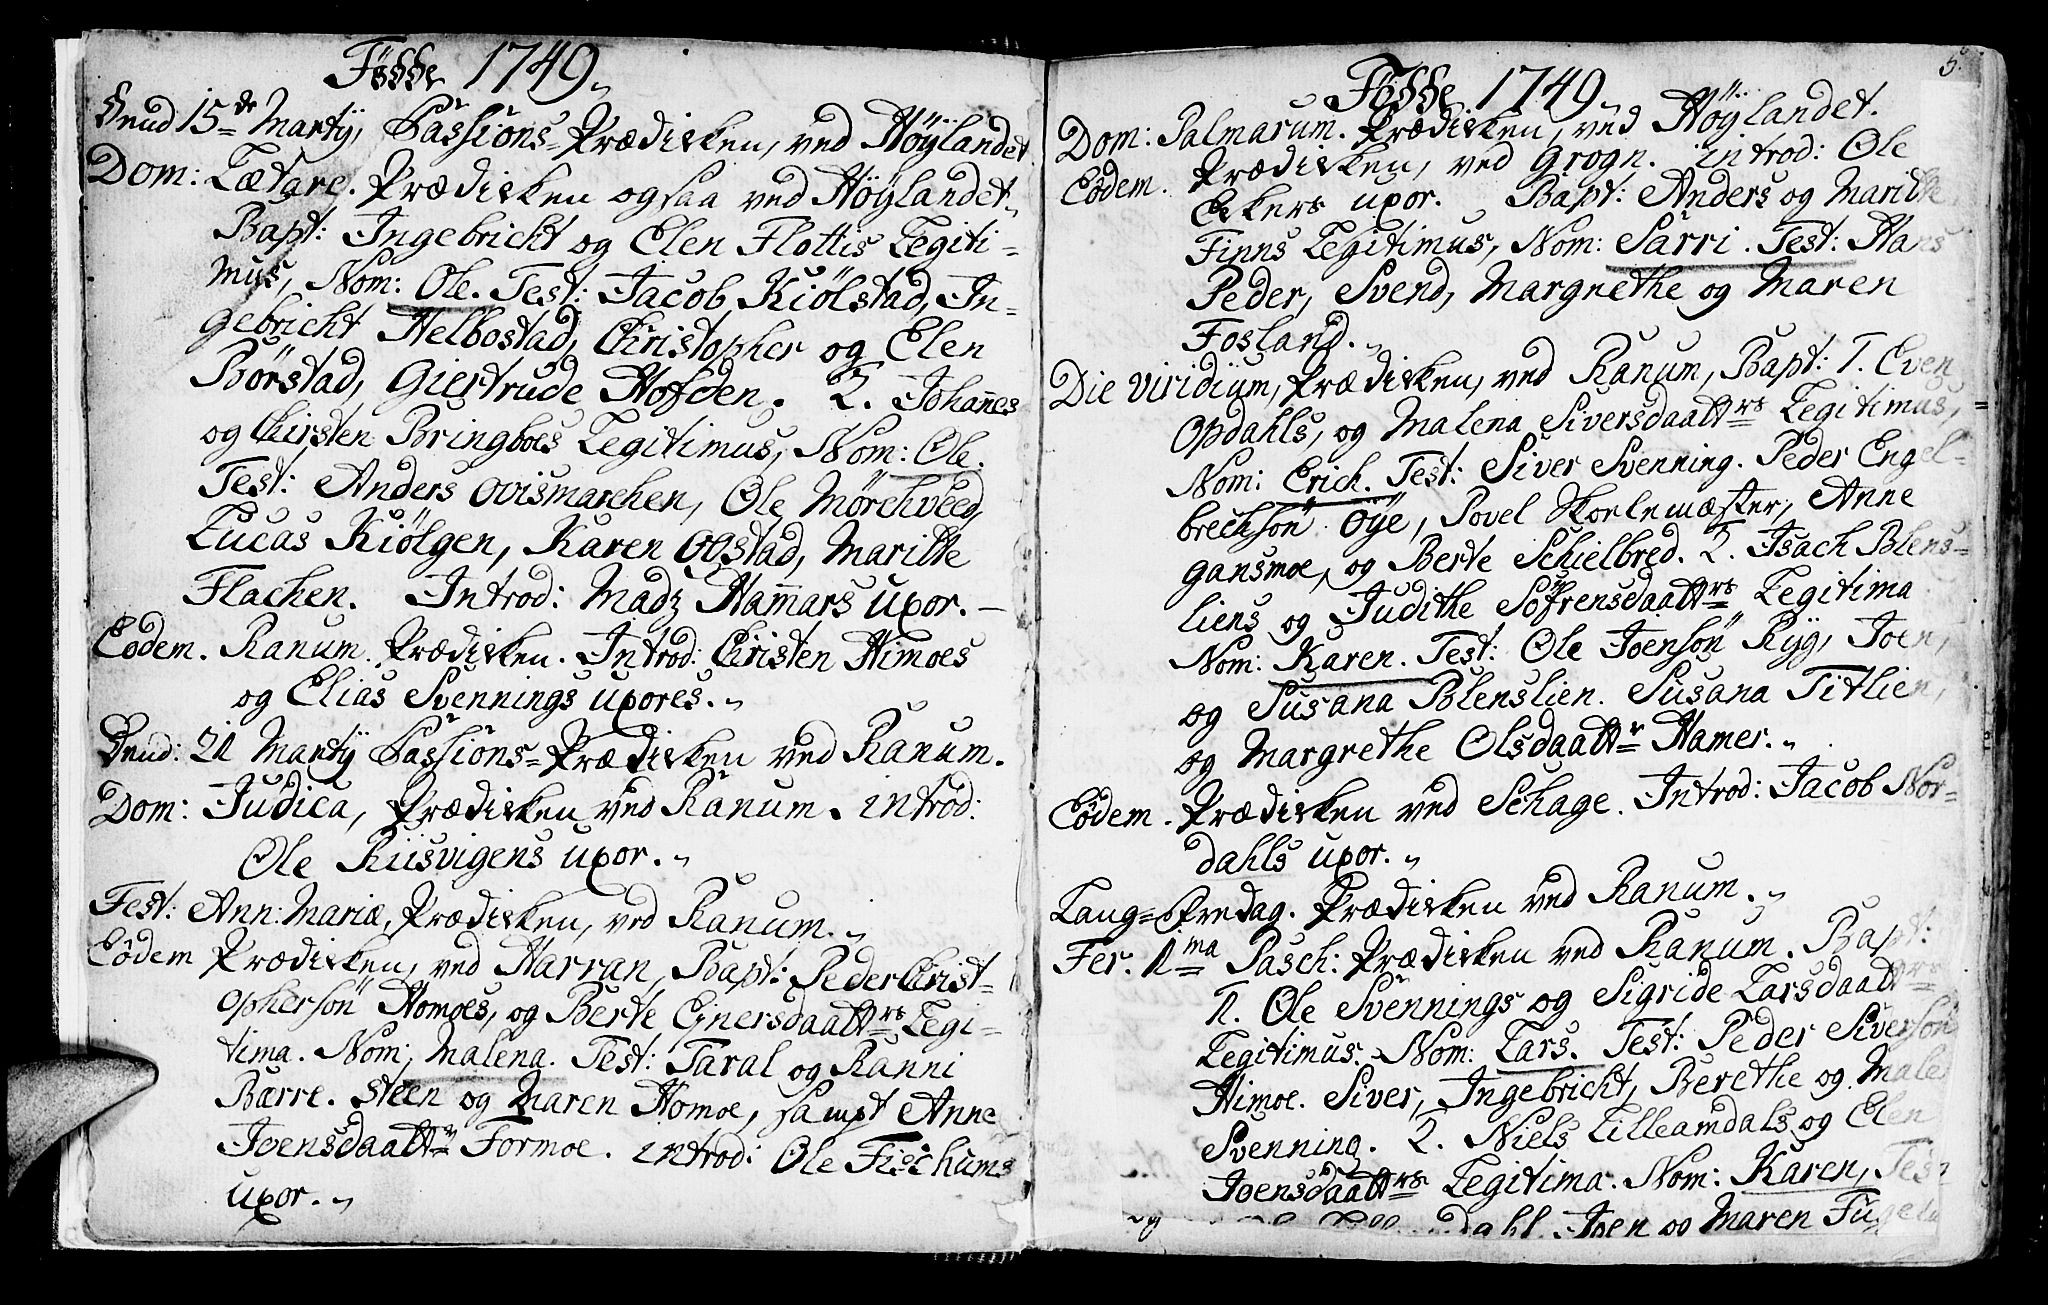 Føsse 1749.
Dend 15de Martÿ, Passions-Prædiken, ved Höÿlandet
Dom: Lætare. Prædisken ogsaa ved Höÿlandet.
Bapt: Ingebricht og Elen Flottis Legiti-
mus, Nom: Ole. Test: Jacob Kiölstad, In-
gebricht Helbostad, Christopher og Elen
Börstad, Giertrude Hofden. 2. Johan̄es
og Chirsten Bringboes Legitimus, Nom: Ole.
Test: Anders Ovismarchen, Ole Mörchveed,
Lucas Kiölgen, Karen Opstad, Marithe
Flachen. Introd: Madz Ham̄ars uxor.
Eodem. Ranum Prædisken. Introd: Christen Himoes
og Elias Svennings uxores.
Dend: 21 Martÿ Passions-Prædisken ved Ranum.
Dom: Judica, Prædisken ved Ranum. introd:
Ole Riisvigens uxor.
Fest: Ann: Mariæ, Prædisken, ved Ranum.
Eödem Prædisken, ved Harran, Bapt: Peder Christ-
ophersön Homoes, og Berte Ejnersdaattrs Legi-
tima. Nom: Malena. Test: Taral og Ranni
Bærre. Steen og Maren Homoe, sampt Anne
Joensdaattr Formoe. introd: Ole Fischums
uxor.
5.
Føsse 1749.
Dom: Palmarum. Prædisken, ved Höÿlandet.
Eodem. Prædisken, ved Grogn. introd: Ole
Ekers uxor. Bapt: Anders og Marithe
Finns Legitimus, Nom: Sarri. Test: Hans
Peder, Svend, Margrethe og Maren
Fosland.
Die viridium, Prædisken, ved Ranum, Bapt: 1. Even
Opdahls, og Malena Siversdaattrs Legitimus,
Nom: Erich. Test: Siver Svenning. Peder Engel-
brechsön Öÿe, Povel Skolemæster, Anne
Gansmoe, og Berte Schielbred. 2. Isach Blens-
liens og Judithe Söfrensdaattrs Legitima
Nom: Karen. Test: Ole Joensön Rÿg, Joen,
og Susana Blenslien. Susana Titlien,
og Margrethe Olsdaattr Hamer.
Eodem. Prædisken ved Schage. Introd: Jacob Nor-
dahls uxor.
Lang-Fredag. Prædisken ved Ranum.
Fer. 1ma Pasch: Prædisken ved Ranum. Bapt:
1. Ole Svennings og Sigride Larsdaattrs
Legitimus. Nom: Lars. Test: Peder Siversön
Himoe. Siver, Ingebricht, Berethe og Malen
Svenning. 2. Niels Lilleamdals og Elen
Joensdaattrs Legitima. Nom: Karen, Test
dahl. Joen og Maren